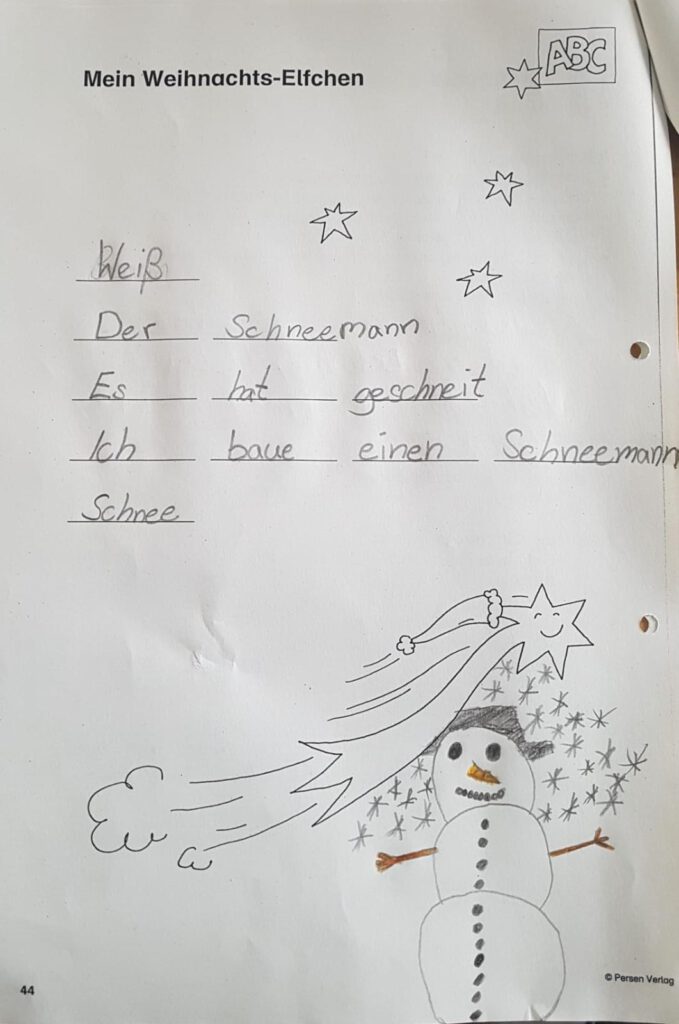 ABC
Mein Weihnachts-Elfchen
Weiß
Der Schneemann
Es hat geschneit
Ich baue einen Schneemann
Schnee
44
© Persen Verlag